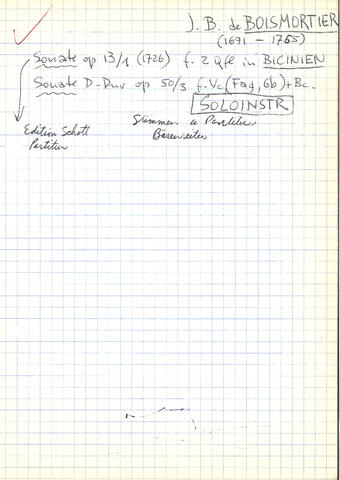 J. B. de BOISMORTIER
(1691 - 1765)
Sonate op 13/1 (1726) f. 2 Qfl in BICINIEN
Sonate D-Dur op 50/3 f. Vc (Fag, Gb) + Bc.
SOLOINSTR
Edition Schott
Partitur
Stimmen u Partitur
Bärenreiter